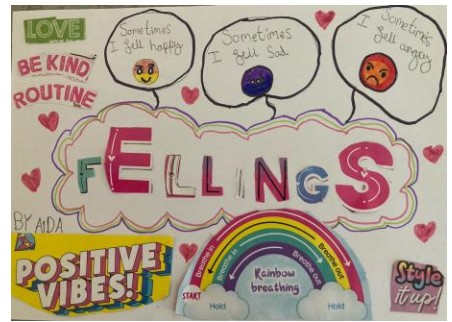 LOVE
BE KIND
ROUTINE
Sometimes
I fell happy
Sometimes
I fell Sad
Sometimes
I fell angry
FELLINGS
BY AIDA
POSITIVE
VIBES!!
Breathe in
Breathe out
Breathe in
Breathe out
Rainbow
breathing
START
Hold
Hold
Style
it up!